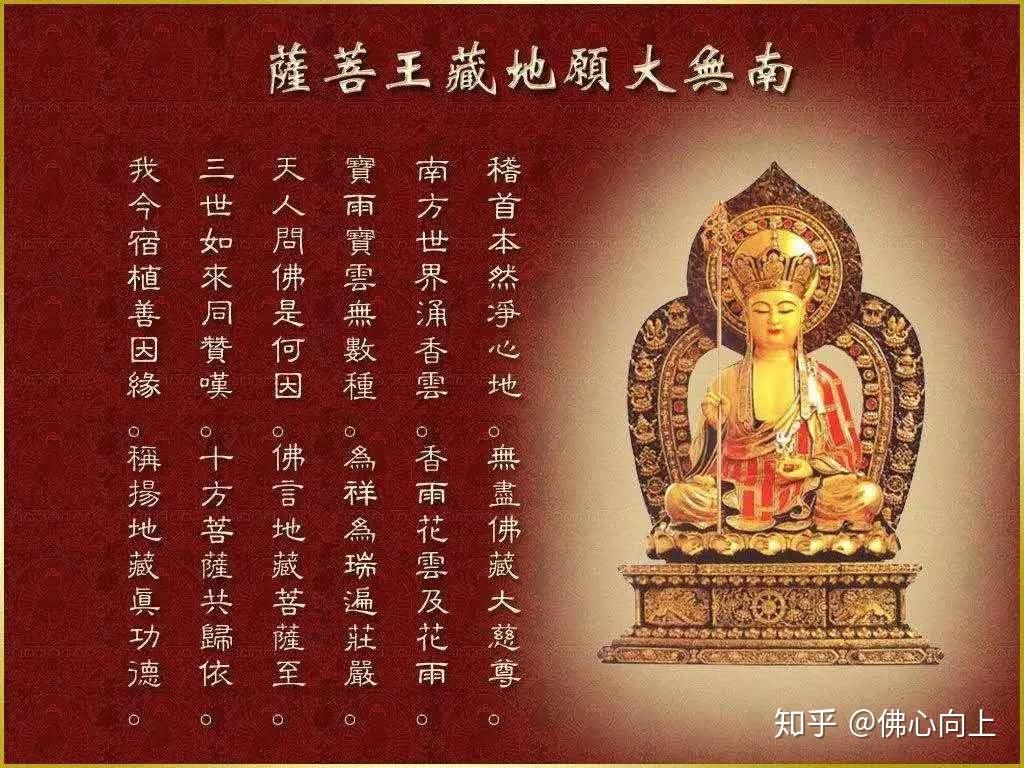 南無大願地藏王菩薩
稽首本然淨心地。無盡佛藏大慈尊。
南方世界涌香雲。香雨花雲及花雨。
寶雨寶雲無數種。為祥為瑞遍莊嚴。
天人問佛是何因。佛言地藏菩薩至。
三世如來同贊嘆。十方菩薩共歸依。
我今宿植善因緣。稱揚地藏眞功德。
知乎 @佛心向上